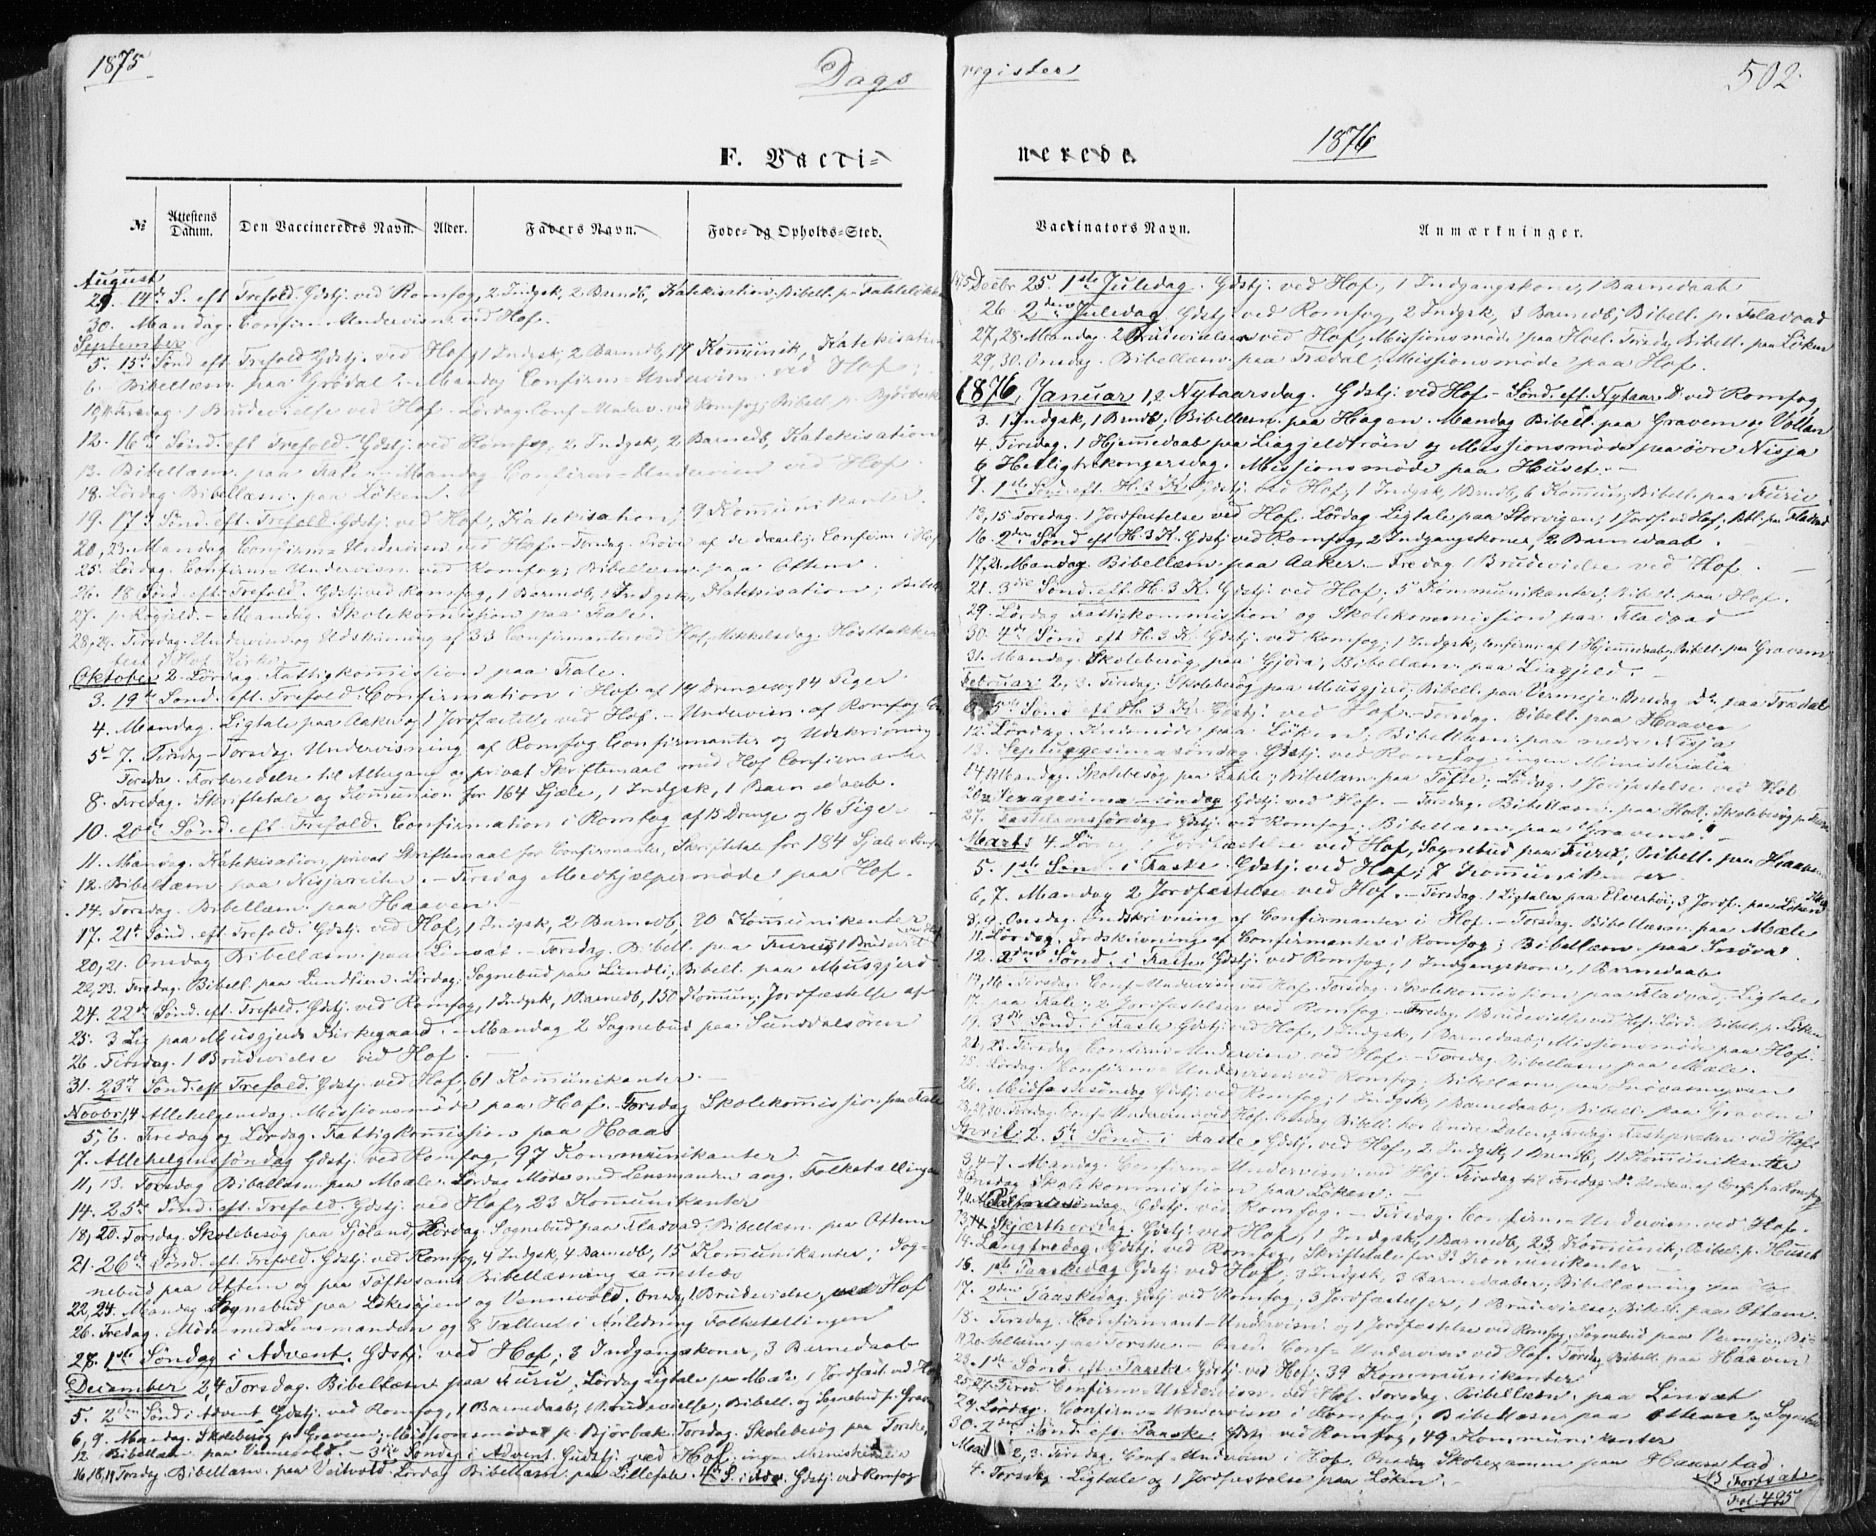 1875
Dags
F. Vacci-
№
Attestens Datum.
Den Vaccineredes Navn.
Alder.
Faders Navn.
Føde- og Opholds-Sted.
August
29. 14de S. eft Trefold. Gdstj. ved Romfog, 2 Indgsk, 2 Barndb, Katekisation, Bibell. p.
30. Mandag Confirm-Undervisn. ved Hof.
September
5. 15de Sønd. eft. Trefold. Gdstj. ved Hof, 1 Indgsk, 2 Barndb, 19 Komunik, Katekisation
6. Bibellæsn. paa Grødal. - Mandag Confirm-Undervisn. ved Hof;
10,11. Fredag. 1 Brudevielse ved Hof. Lørdag. Conf-Underv. ved Romfog; Bibell. p. Bjørbæk
12. 16de Sønd. eft Trefold. Gdstj. ved Romfog, 2 Indgsk, 2 Barndb, Katekisation
13. Bibellæsn. paa Fale. - Mandag Confirm-Undervisn ved Hof.
18. Lørdag. Bibellæsn. paa Løken.
19. 17de Sønd. eft. Trefold. Gdstj. ved Hof, Katekisation, 9 Komunikanter.
20, 23. Mandag Confirm-Undervisn ved Hof. - Torsdag. Prøve af de daarlige Confirm i Hof
25. Lørdag. Confirm-Undervisn. ved Romfog; Bibellæsn. paa Ottem.
26. 18 Sønd. eft. Trefold. Gdstj. ved Romfog, 1 Barndb, 1 Indgsk, Katekisation;
27. - Mandag. Skolekomission paa Fale.
28, 29. Tirsdag. Undervisn og Udskrivning af 33 Confirmanter ved Hof, Mikkelsdag. Høsttakke
fest i Hof Kirke.
Oktober 2. Lørdag. Fattigkomission paa Fale.
3. 19de Sønd. eft. Trefold. Confirmation i Hof af 14 Drenge og 14 Piger.
4. Mandag. Ligtale paa Aaker og 1 Jordfæstelse ved Hof. - Undervisn. af Romfog
5-7. Tirsdag-Torsdag. Undervisning af Romfog Confirmanter og Udskrivning
Torsdag. Forberedelse til Altergang og privat Skriftemaal med Hof Confirmanter
8. Fredag. Skriftetale og Komunion for 164 Sjæle, 1 Indgsk, 1 Barnedaab.
10. 20de Sønd. eft. Trefold. Confirmation i Romfog af 15 Drenge og 16 Piger
11. Mandag. Katekisation, privat Skriftemaal for Confirmanter, Skriftetale for 184 Sjæle
12. Bibellæsn paa Nisjareiten. - Tirsdag Medhjælpermøde paa Hof.
14. Torsdag. Bibellæsn. paa Haaven.
17. 21de Sønd. eft. Trefold. Gdstj. ved Hof, 1 Indgsk, 2 Barndb, 20 Komunikanter
20, 21. Onsdag Bibellæsn paa Linsæt. - Torsdag. Bibell. paa Furu; 1 Brudeviel.
22, 23. Fredag. Bibell. paa Lundlien. Lørdag. Sognebud paa Lundli; Bibell. paa Musgjerd
24. 22de Sønd. eft. Trefold. Gdstj. ved Romfog, 1 Indgsk, 1 Barnedb, 150 Komun; Jordfæstelse af
25. 3 Lig paa Musgjerds Kirkegaard. - Mandag 2 Sognebud paa Sunddalsøren
26. Tirsdag. 1 Brudevielse ved Hof.
31. 23de Sønd. eft Trefold. Gdstj. ved Hof, 61 Komunikanter.
Novbr. 1,4 Allehelgensdag. Missionsmøde paa Hof. Torsdag Skolekomission paa Fale
5, 6. Fredag og Lørdag. Fattigkomission paa Hoaas
7. Allehelgenssøndag Gdstj. ved Romfog, 97 Kommunikanter
11, 13. Torsdag Bibellæsn. paa Mæle. Lørdag Møde med Lensmanden ang. Folketællingen
14. 25de Sønd. eft. Trefold. Gdstj. ved Hof, 23 Komunikanter
18, 20. Torsdag. Skolebesøg paa Sjøland, Lørdag. Sognebud paa Fladvad. Bibellæsn. paa Ottem
21. 26de Sønd. eft. Trefold. Gdstj. ved Romfog, 4 Indgsk, 4 Barnedb, 15 Komunikanter; Sog-
nebud paa Ottem og paa Toftesand. Bibellæsning samesteds
22, 24. Mandag Sognebud paa Løkesøien og Vennevold. Onsdag 1 Brudevielse ved Hof
26. Fredag. Møde med Lensmanden og 8 Tællere i Anledning Folketellingen
28. 1ste Søndag i Advent. Gdstj. ved Hof; 3 Indgangskoner, 3 Barnedaab
December 2,4 Torsdag. Bibellæsn paa Furu. Lørdag Ligtale paa Mæle. 1 Jordfæst. ved Hof
5. 2den Sønd i Advent Gdstj. ved Romfog, 1 Barnedaab; 1 Brudevielse; Bibell. og Sognebud p. Graven
6, 9. Mandag. Skolebesøg p. Graven; Missionsmøde p. Bjørbæk. Torsdag. Skolebesøg paa Forske,
12 Bibellæsn paa Vennevold. - 3die Søndag i Advent Gudstj. ved Hof, ingen Ministerialia
16 18, 19 Torsdag Bibellæsn. paa Veitvold. Lørdag Bibellæsn paa Lillefale. 4de S. i Adv. Gdstj. ved Romfog
register
502.
1876
nerede.
Vaccinators Navn.
Anmærkninger.
1875 Decbr 25. 1ste Juledag. Gdstj. ved Hof, 1 Indgangskone, 1 Barnedaab
26. 2den Juledag Gdstj. ved Romfog, 2 Indgsk, 3 Barnedb; Bibell. p. Fladvad
27, 28. Mandag. 2 Brudevielser ved Hof; Missionsmøde paa Hoel. Tirsdag Bibell. paa Løken
29, 30. Onsdag Bibellæsn. paa Fredal; Missionsmøde paa Hof.
1876, Januar 1, 2 Nytaarsdag. Gdstj. ved Hof - Sønd. eft. Nytaar Do ved Romfog
3. 1 Indgsk, 1 Brndb; Bibellæsn. paa Hagen. Mandag Bibell. paa Gravem og Vollan
4. Tirsdag. 1 Hjemmedaab paa Liagjeldtrøen og Missionsmøde paa øvre Nisja
6 Helligtrekongersdag. Missionsmøde paa Huset. -
9. 1ste Sønd. eft. H. 3 K. Gdstj. ved Hof, 1 Indgsk, 1 Brndb, 6 Komun, Bibell. paa Furu
13, 15 Torsdag. 1 Jordfæstelse ved Hof. Lørdag Ligtale paa Storvigen; 1 Jordf. v. Hof. Bibl. paa Fladvad
16. 2den Sønd eft H. 3 K. Gdstj ved Romfog, 2 Indgangskoner, 2 Barnedaab.
17, 21. Mandag. Bibellæsn. paa Aaker. - Fredag 1 Brudevielse ved Hof.
21. 3die Sønd. eft. H. 3 K. Gdstj. ved Hof, 5 Kommunikanter; Bibell. paa Hof.
29. Lørdag Fattigkommission og Skolekommission paa Fladvad
30. 4de Sønd eft H. 3 K. Gdstj. ved Romfog; 1 Indgsk, Confirm. af 1 Hjemmedaab, Bibell. paa Gravem
31. Mandag. Skolebesøg paa Gjøra, Bibellæsn. paa Liagjeld.
Februar. 2, 3. Tirsdag; Skolebesøg paa Musgjerd; Bibell. paa Vermeje. Onsdag Do paa Fredal
6. 5te Sønd eft H. 3 K. Gdstj. ved Hof. - Torsdag. Bibell. paa Haaven
12. Lørdag. paa Løken, Bibellæsn. paa nedre Nisja
13. Septuagesimasøndag. Gdstj. ved Romfog, ingen Ministerialia
14, Mandag. Skolebesøg paa Fahle; Bibellæsn. paa Tofte; Lørdag. 1 Jordfæstelse ved Hof.
20, Sexagesima-søndag Gdstj. ved Hof. - Torsdag. Bibellæsn. paa Hoel, Skolebesøg p. Furu
27. Fastelavnssøndag. Gdstj. ved Romfog; Bibellæsn. paa Gravem.
Marts 4. Lørdag Jordfæstelse ved Hof, Sognebud paa Furu; Bibell. paa Haaven
5. 1ste Sønd. i Faste. Gdstj. ved Hof; 7 Komunikanter.
6, 7. Mandag 2 Jordfæstelse ved Hof. - Tirsdag. 1 Ligtale paa Elvershøi; 3 Jordf. paa Løken
8, 9. Onsdag. Indskrivning af Confirmanter i Hof - Torsdag. Bibellæsn. paa Mæle
11. Lørdag. Indskrivning af Confirmanter i Romfog; Bibellæsn. paa Snøva.
12. 2den Sønd. i Faste. Gdstj. ved Romfog, 1 Indgangskone, 1 Barnedaab
13, 16. Conf-Undervisn ved Hof. Torsdag. Skolekomission paa Fladvad, Ligtale
17. paa Fale; 2 Jordfæstelser ved Romfog. - Fredag. 1 Brudevielse ved Hof. Lørd. Bibell. p. Løken
19. 3die Sønd. i Faste Gdstj. ved Hof, 1 Indgsk, 1 Barnedaab; Missionsmøde paa Hof.
21, 23. Tirsdag Confirm-Undervisn ved Hof. - Torsdag. Bibellæsn paa Mæle.
25. Lørdag. Confirm-Undervisn. ved Romfog; Bibellæsn. paa
26. Midfastesøndag Gdstj. ved Romfog; 1 Indgsk, 1 Barnedaab; Bibell. paa Graven
Conf-Undervisn ved Hof. Onsdag Bibell. hos Endre Fale. Fredag. Fasteprædiken ved Hof
April. 2. 5te Sønd. i Faste Gdstj. ved Hof, 2 Indgsk, 1 Barndb, 11 Komunikanter
3, 4-7. Mandag. Confirm-Undervisn. ved Hof. Tirsdag til Fredag Do Underv. af Conf. fra Romfog
Onsdag Skolekommission paa Løken. -
9, 11. Palmesøndag. Gdstj. ved Romfog. - Tirsdag. Confirm-Undervisn. ved Hof.
13, 14. Skjærthorsdag. Gdstj. ved Hof, 1 Indgsk, 1 Barnedb, 23 Komunik, Bibel. p. Huset
14. Langfredag. Gdstj. ved Romfog, Skriftetale for 33 Komunikanter
16. 1ste Paaskedag Gdstj. ved Hof; 3 Indgsk, 3 Barnedaaber; Bibellæsning paa
17. 2den Paaskedag. Gdstj. ved Romfog; 3 Jordfæstelser, 1 Brudevielse; Bibell. paa Ottem.
18. Tirsdag. Confirmant-Undervisn. og 1 Jordfæstelse ved Romfog. Sognebud paa Vermeje; Bi-
bellæsn paa Forske. - Onsd. Conf-Undervisn. ved Hof. Torsdag Bibell. paa Haaven
23. 1ste Sønd. eft. Paaske Gdstj. ved Hof; 39 Kommunikanter
25, 27. Tirsd. Confirm-Undervisn. ved Hof. Torsdag. Bibellæsn. paa Linsæt
29. Lørdag. Confirm-Undervisn i Romfog; Bibellæsn paa Ottem og Sognebud
30. 2den Sønd eft. Paaske. Gdstj. ved Romfog, 49 Kommunikanter
Mai 2, 3. Tirsdag. Conf-Undervisn i Hof. Onsdag Skolexamen paa Haarstad.
4. Torsdag. Ligtale og 1 Jordfæstelse paa Løken.
Fortsat
Fol. 495